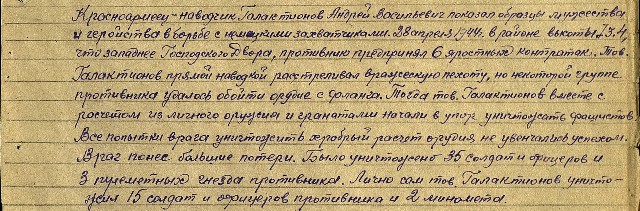 Красноармеец-наводчик Галактионов Андрей Васильевич показал образцы мужества
и геройства в борьбе с немецкими захватчиками. 28 апреля 1944г. в районе высоты 23.4,
что западнее Господского Двора, противник предпринял 6 яростных контратак. Тов.
Галактионов прямой наводкой расстреливал вражескую пехоту, но некоторой группе
противника удалось обойти орудие с фланга. Тогда тов. Галактионов вместе с
расчетом из личного оружия и гранатами начали в упор уничтожать фашистов.
Все попытки врага уничтожить храбрый расчет орудия не увенчались успехом.
Враг понес большие потери. Было уничтожено 35 солдат и офицеров и
3 пулеметных гнезда противника. Лично сам тов. Галактионов уничто-
жил 15 солдат и офицеров противника и 2 миномета.